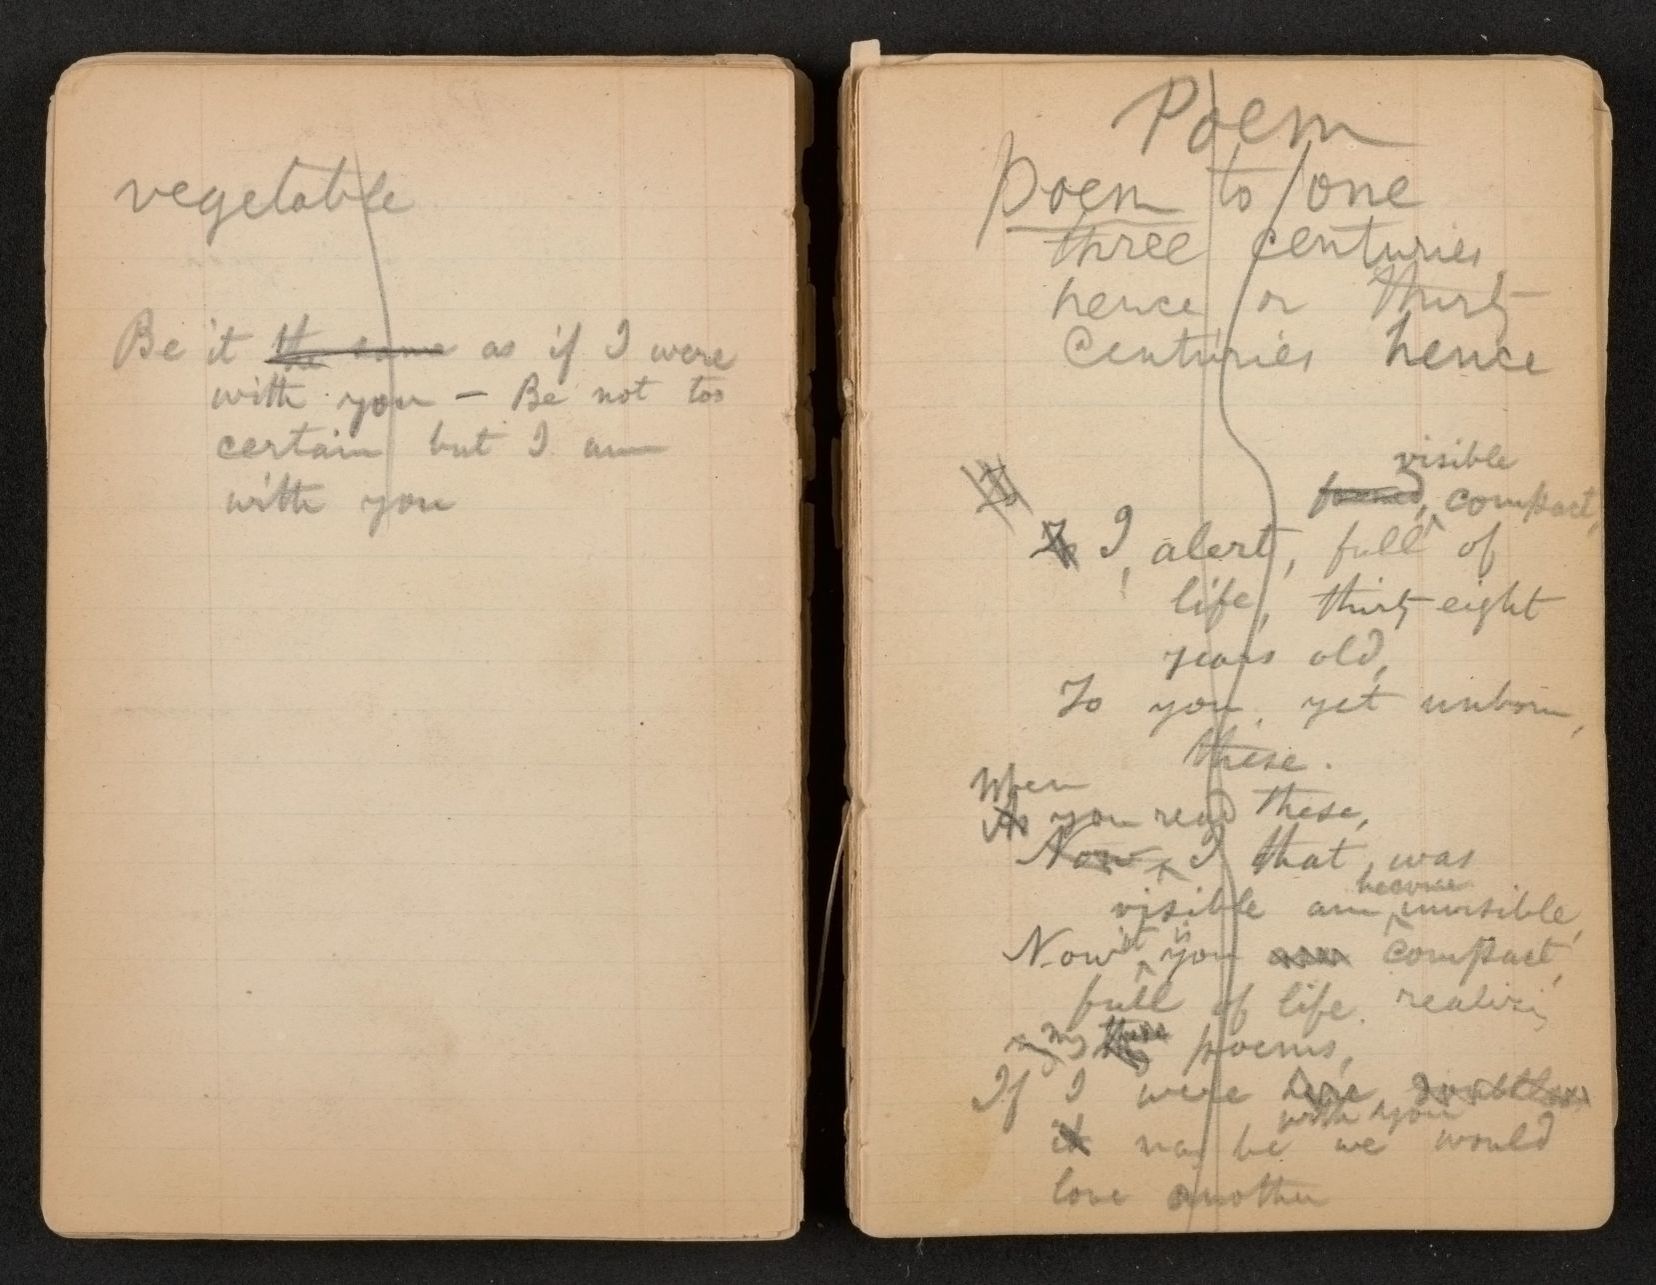 vegetable
Be it the same as if I were
with you — Be not too
certain but I am
with you
Poem
Poem to one
three centuries
hence or thirty
Centuries hence
visible
To
formed, compact,
To I, alert, full of
life, thirty-eight
years old,
To you, yet unborn,
these.
When
As you read these,
Now I that was
become
visible am invisible,
it is
Now you are compact,
full of life
my these poems,
If I were here doubtless
with you
it may be we would
love another